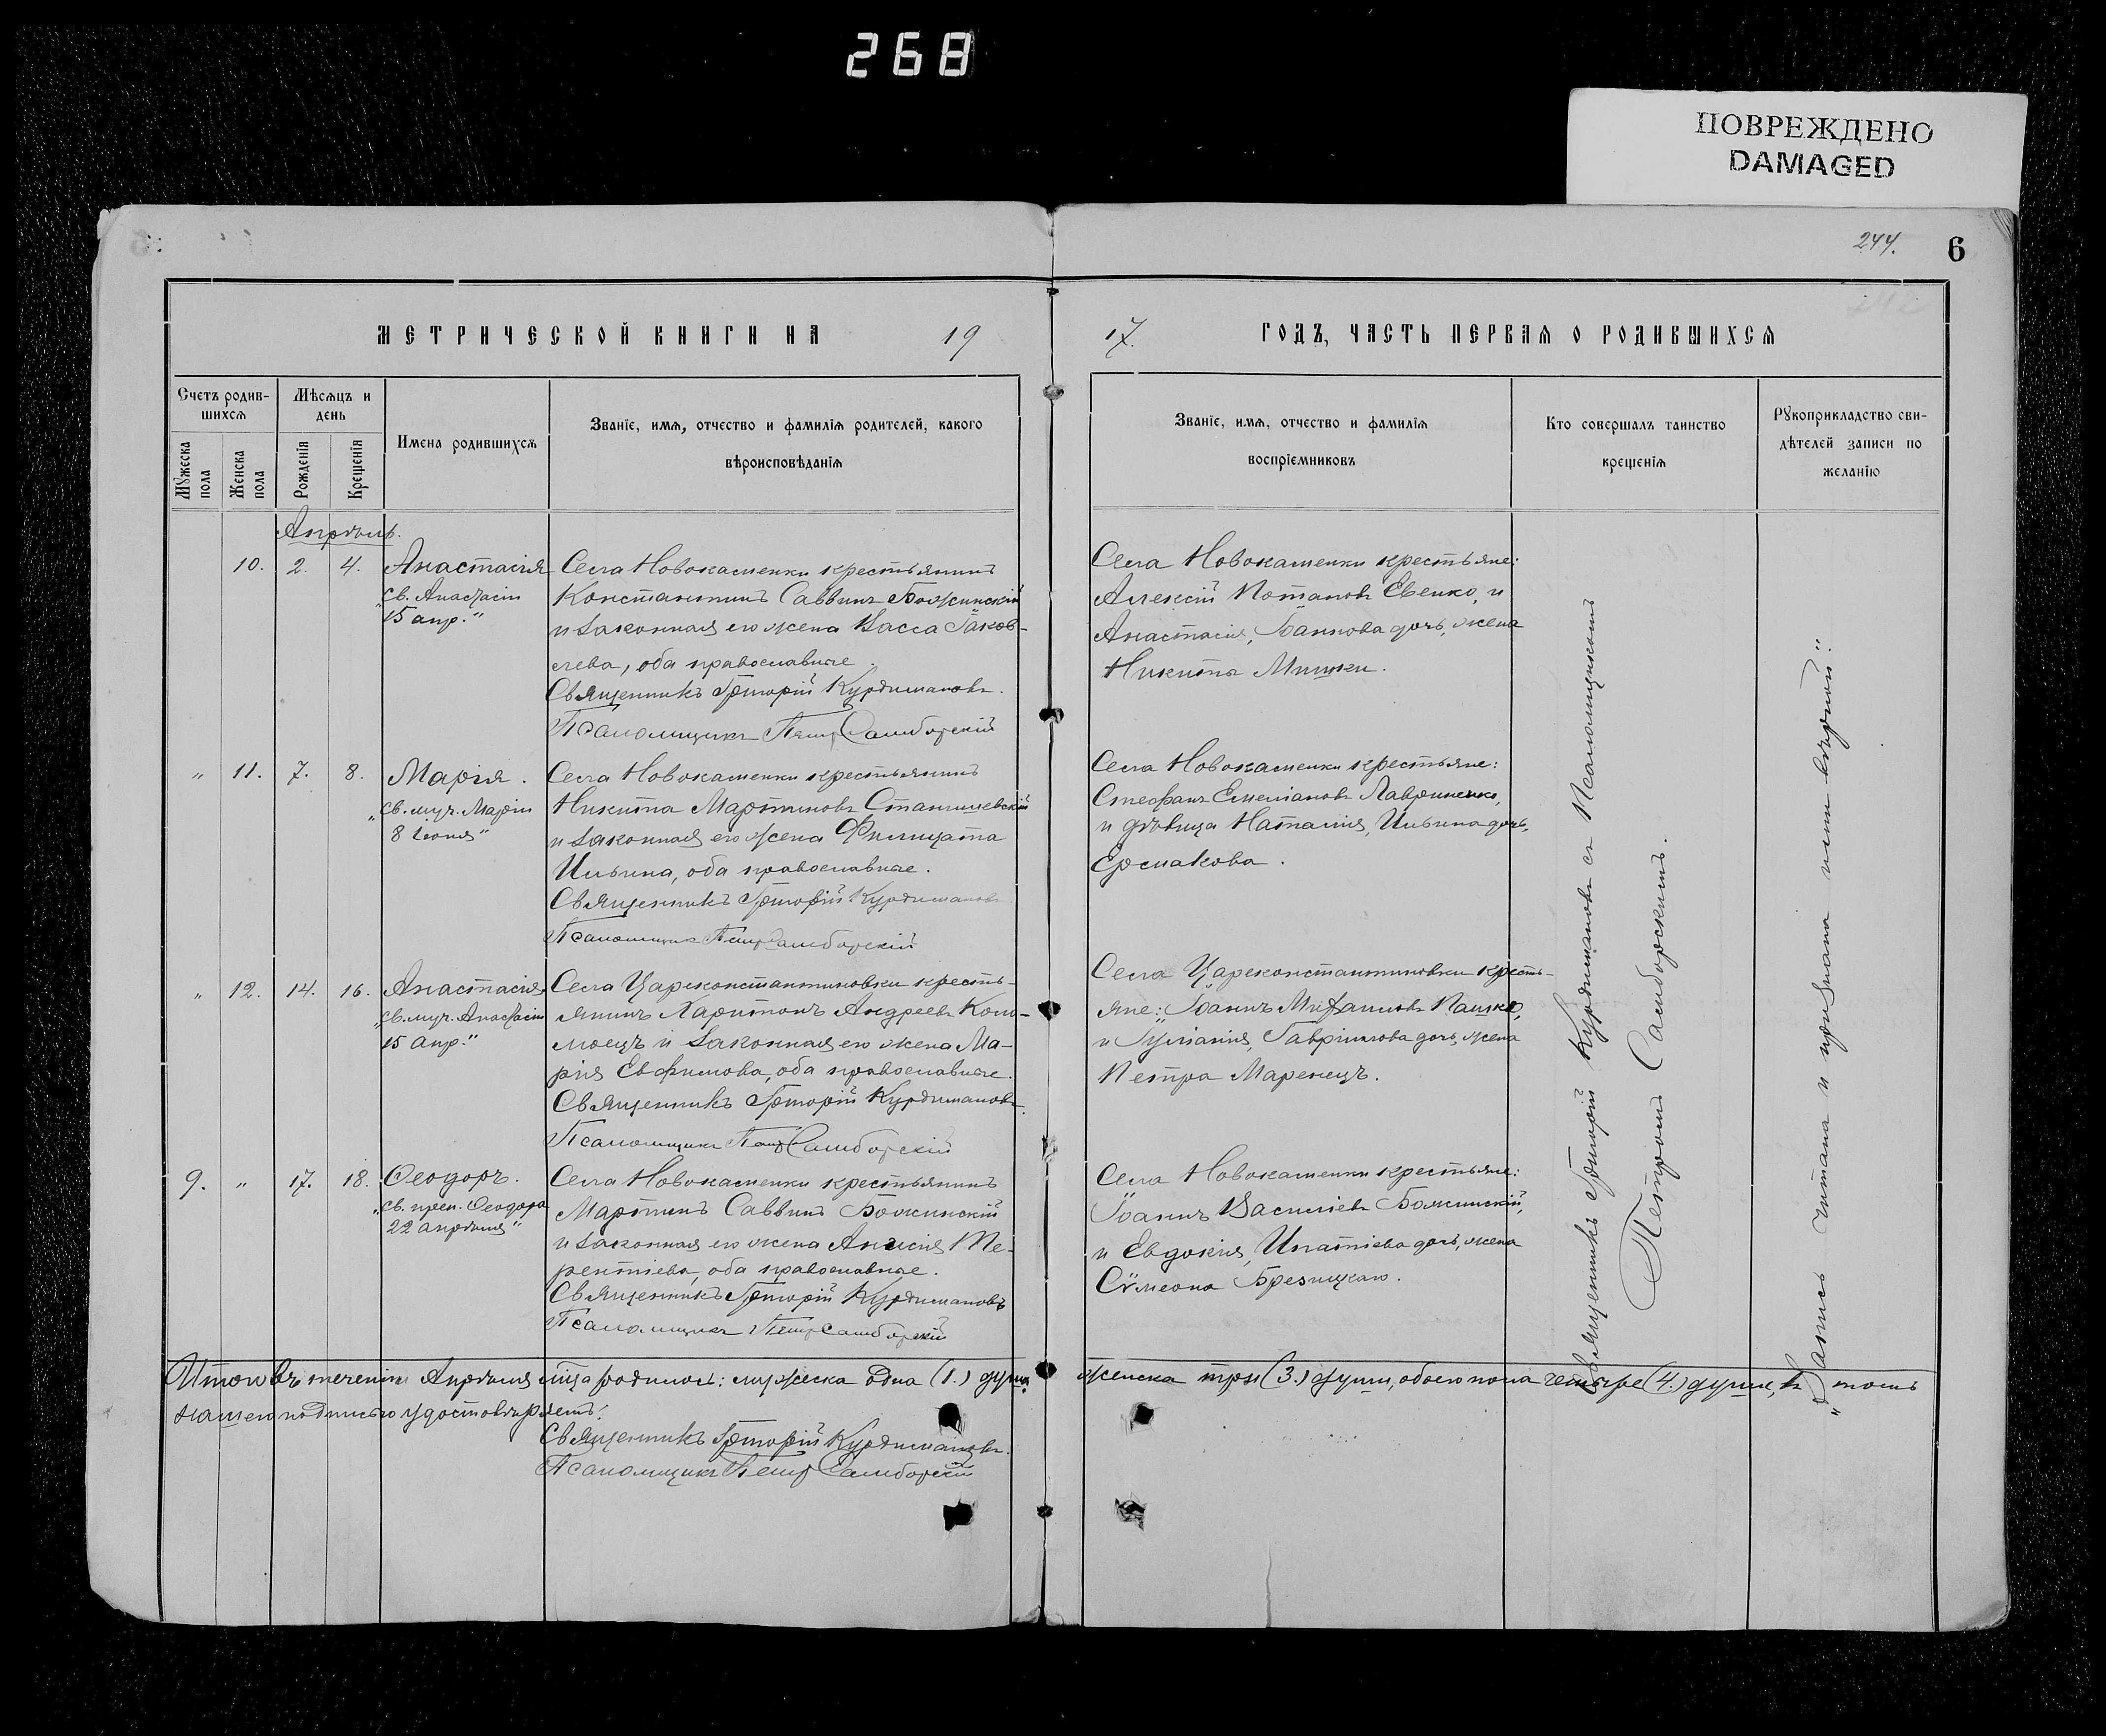 268
ПОВРЕЖДЕНО
DAMAGED
244.
6
МЕТРИЧЕСКОЙ КНИГИ НА 19
17. ГОДЪ, ЧАСТЬ ПЕРВАЯ О РОДИВШИХСЯ
Счетъ родив-
шихся
Мужеска
пола
Женска
пола
Мѣсяцъ и
день
Рожденія
Крещенія
Имена родившихся
Званіе, имя, отчество и фамилія родителей, какого
вѣроисповѣданія
Званіе, имя, отчество и фамилія
воспріемниковъ
Кто совершалъ таинство
крещенія
Рукоприкладство сви-
дѣтелей записи по
желанію
Апрѣль.
10. 2. 4.
Анастасія
„св. Анастасіи
15 апр.“
Села Новокаменки крестьянинъ
Константинъ Саввинъ Божинскій
и законная его жена Васса Іаков-
лева, оба православные.
Священникъ Григорій Курдимановъ.
Псаломщикъ Петръ Самборскій
Села Новокаменки крестьяне:
Алексій Потаповъ Евенко, и
Анастасія, Іоаннова дочь, жена
Никиты Мишки.
„ 11. 7. 8.
Марія.
„св. муч. Маріи
8 іюня“
Села Новокаменки крестьянинъ
Никита Мартиновъ Станишевскій
и законная его жена Филицата
Ильина, оба православные.
Священникъ Григорій Курдимановъ
Псаломщикъ Петръ Самборскій
Села Новокаменки крестьяне:
Стефанъ Емеліановъ Лавриненко,
и дѣвица Наталія, Ильина дочь,
Ермакова.
„ 12. 14. 16.
Анастасія
„св. муч. Анастасіи
15 апр.“
Села Цареконстантиновки кресть-
янинъ Харитонъ Андреевъ Коло-
моецъ и законная его жена Ма-
рія Евфимова, оба православные.
Священникъ Григорій Курдимановъ.
Псаломщикъ Петръ Самборскій
Села Цареконстантиновки кресть-
яне: Іоаннъ Михаиловъ Пашко,
и Іуліанія, Гавріилова дочь, жена
Петра Маренецъ.
9. „ 17. 18.
Ѳеодоръ.
„св. преп. Ѳеодора
22 апрѣля“
Села Новокаменки крестьянинъ
Мартинъ Саввинъ Божинскій
и законная его жена Анисія Те-
рентіева, оба православные.
Священникъ Григорій Курдимановъ
Псаломщикъ Петръ Самборскій
Села Новокаменки крестьяне:
Іоаннъ Василіевъ Божинскій,
и Евдокія, Ипатіева дочь, жена
Сѵмеона Брезицкаго.
Священникъ Григорій Курдимановъ съ Псаломщикомъ
Петромъ Самборскимъ.
„Запись читана и признана нами вѣрной“.
Итого въ теченіи Апрѣля м-ца родилось: мужеска одна (1.) душа
женска три (3.) души, обоего пола четыре (4.) души, въ томъ
нашею подписью удостовѣряемъ:
Священникъ Григорій Курдимановъ.
Псаломщикъ Петръ Самборскій